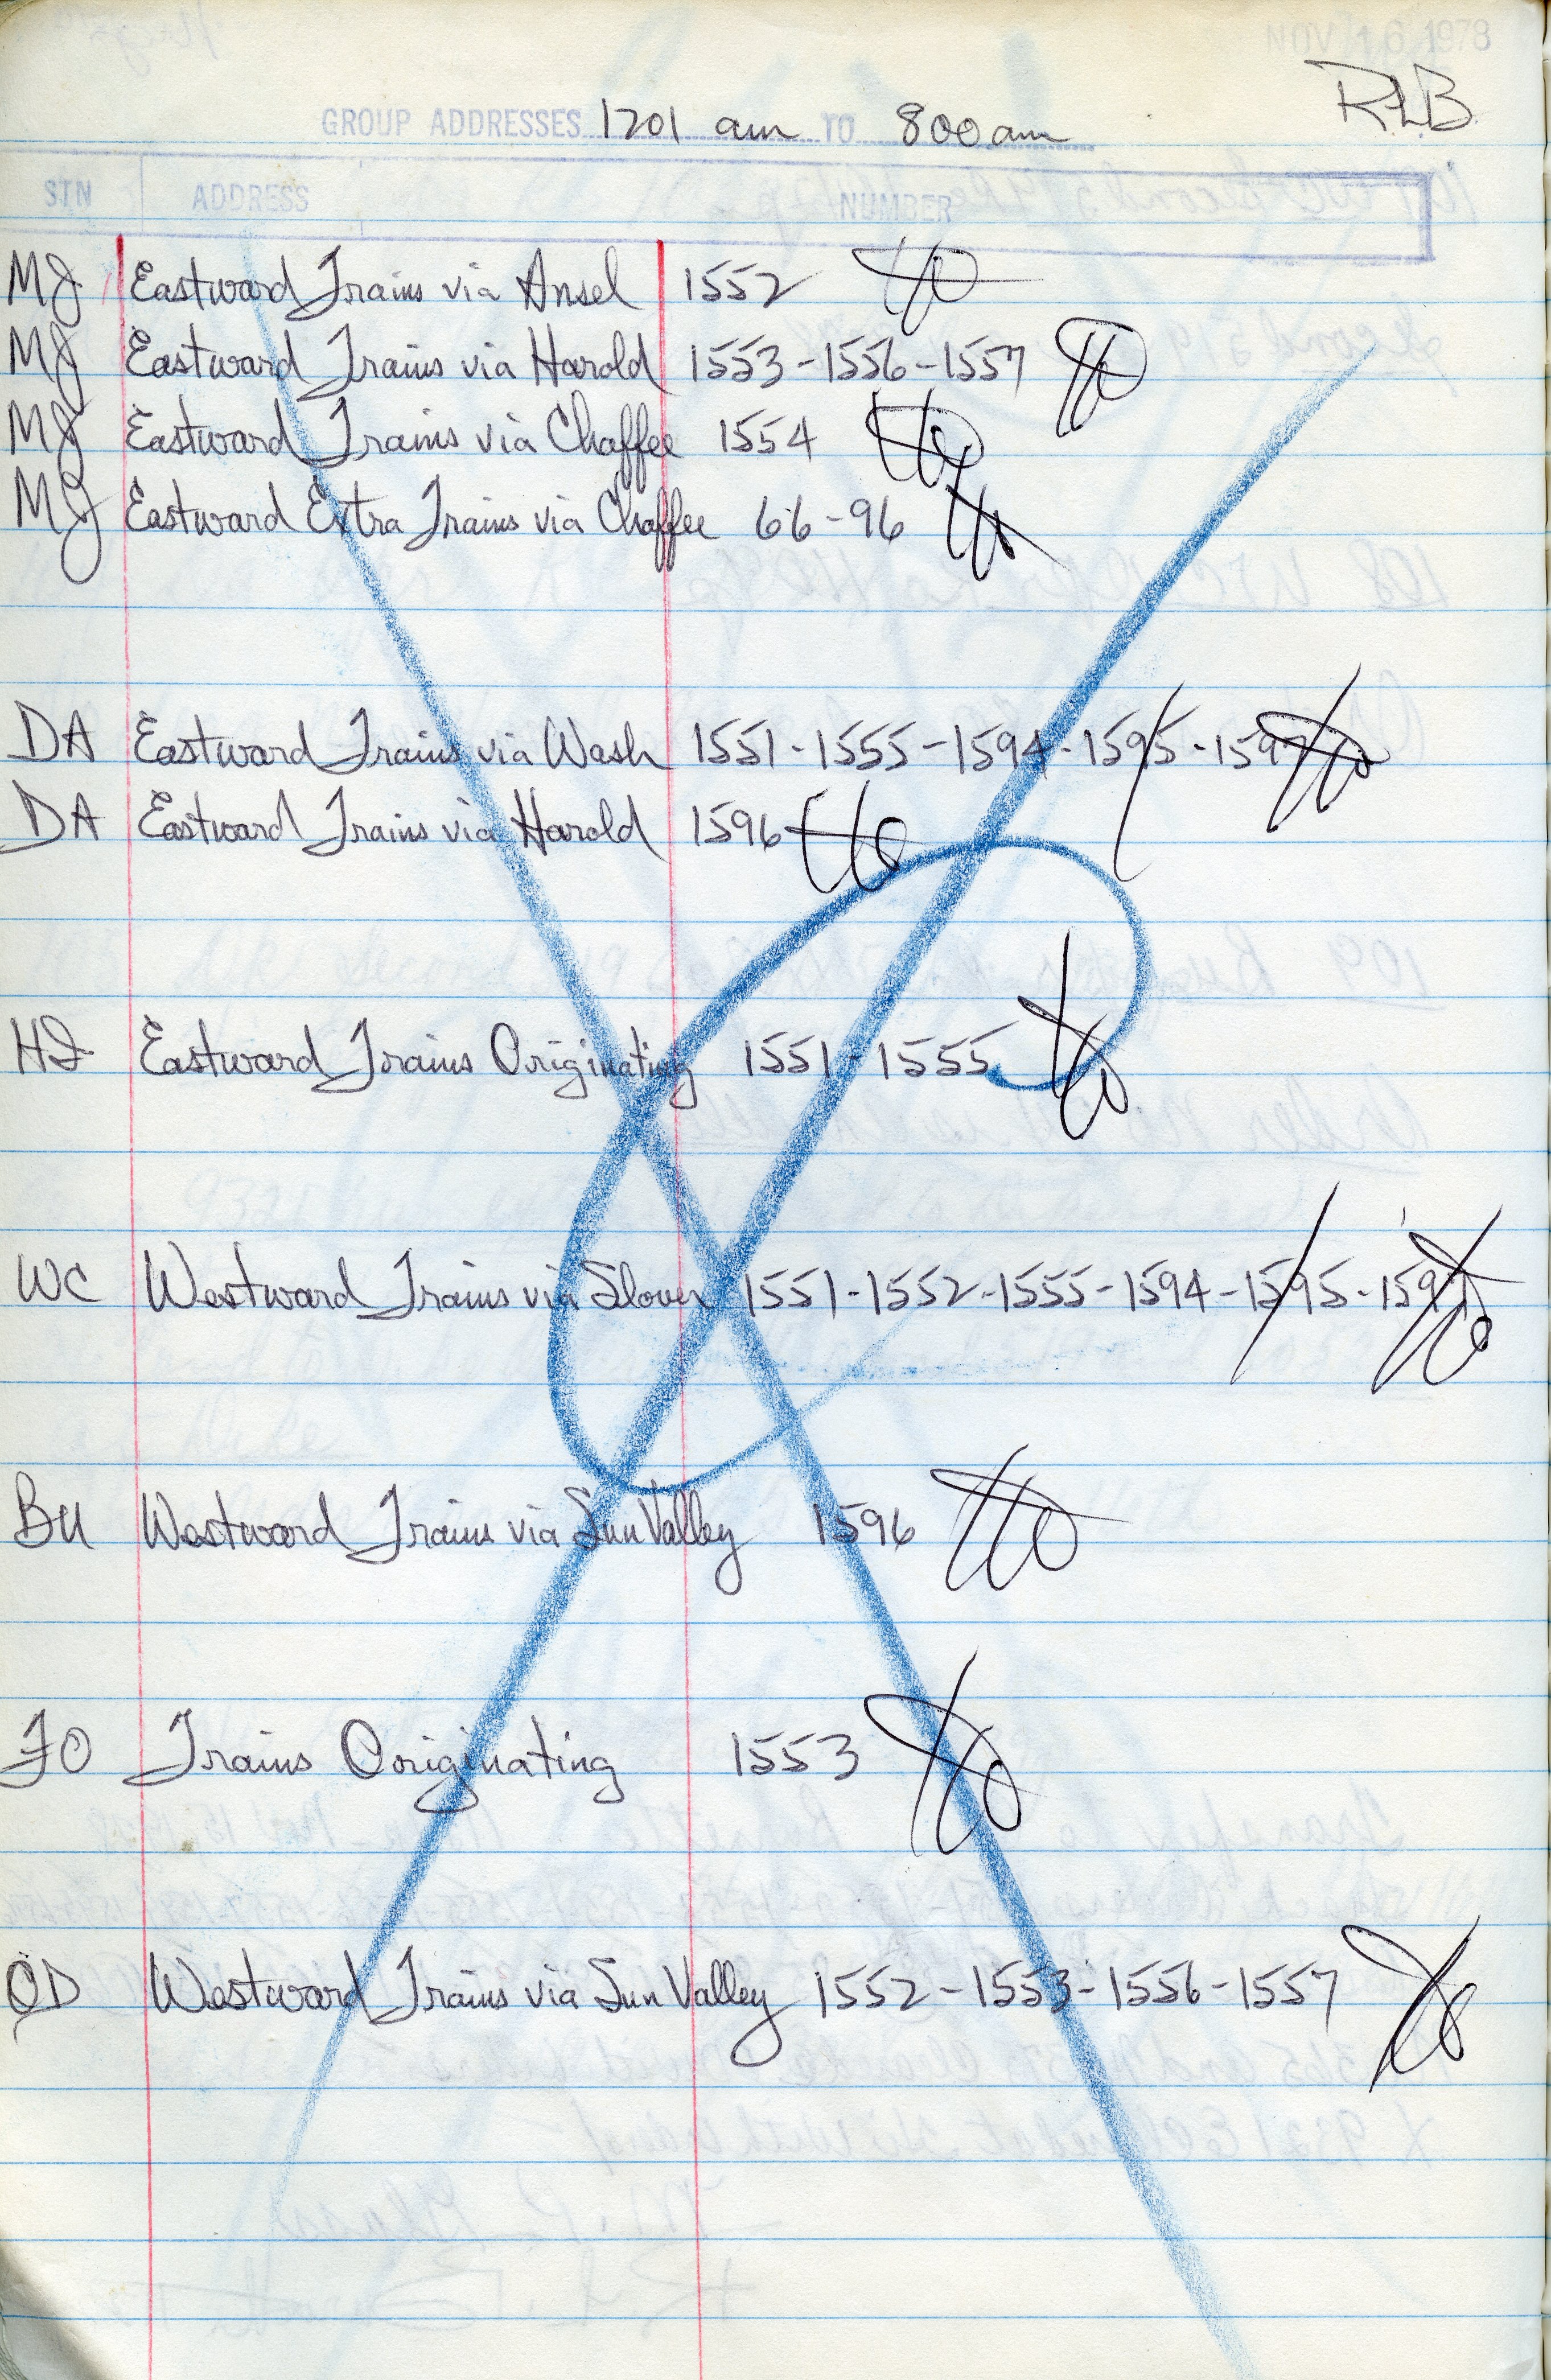 NOV 16 1978
RLB
GROUP ADDRESSES 1201 am TO 800 am
STN ADDRESS NUMBER
MJ Eastward Trains via Ansel 1552
MJ Eastward Trains via Harold 1553-1556-1557
MJ Eastward Trains via Chaffee 1554
MJ Eastward Extra Trains via Chaffee 66-96
DA Eastward Trains via Wash 1551-1555-1594-1595-1597
DA Eastward Trains via Harold 1596
HI Eastward Trains Originating 1551-1555
WC Westward Trains via Slover 1551-1552-1555-1594-1595-1597
BU Westward Trains via Sun Valley 1596
FO Trains Originating 1553
OD Westward Trains via Sun Valley 1552-1553-1556-1557